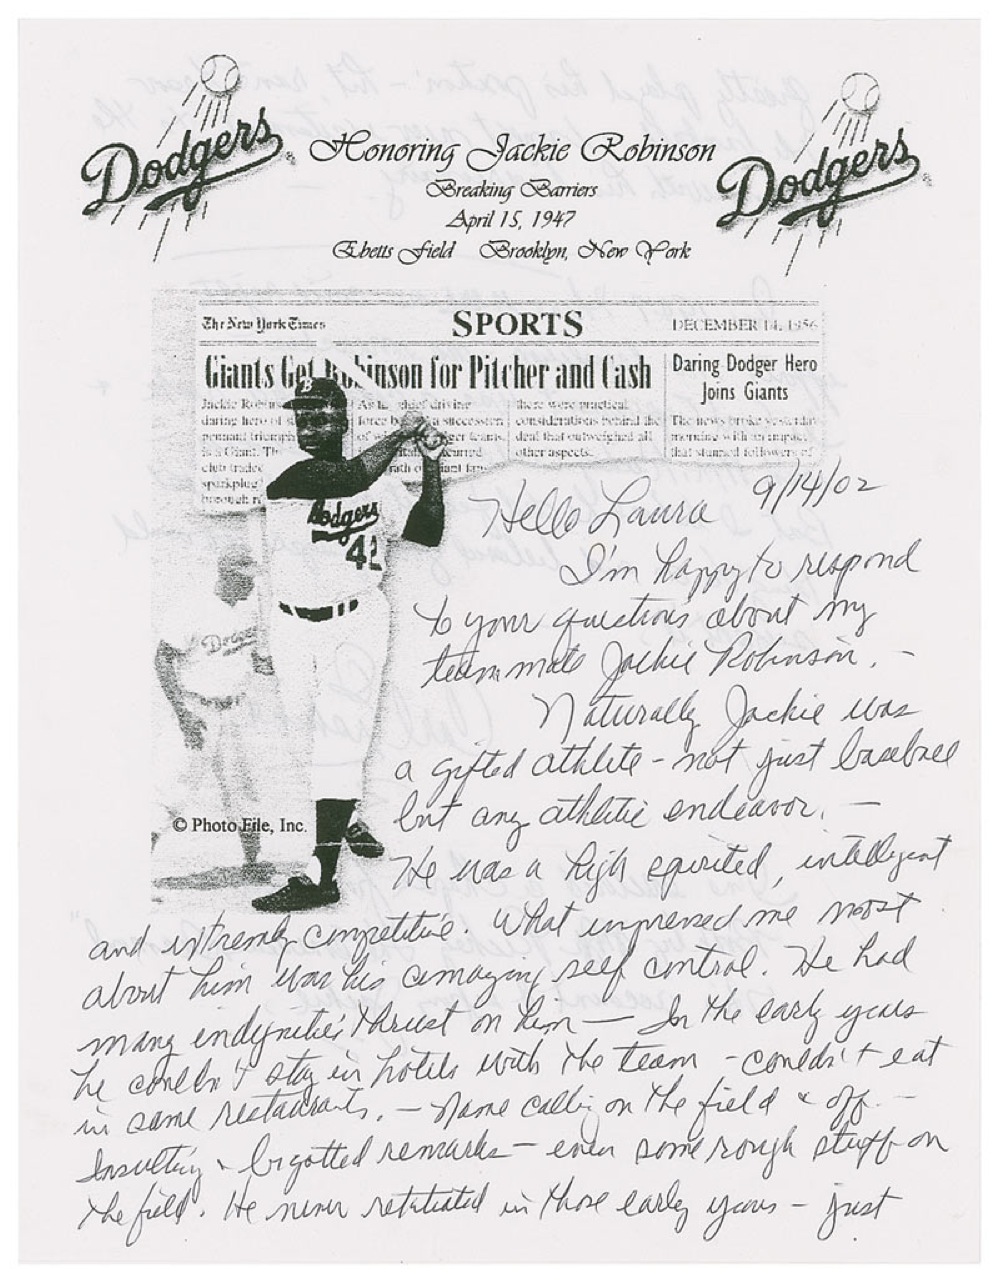 Dodgers
Honoring Jackie Robinson
Dodgers
Breaking Barriers
April 15, 1947
Ebetts Field Brooklyn, New York
The New York Times
SPORTS
DECEMBER 14, 1956
Giants Get Robinson for Pitcher and Cash
Daring Dodger Hero
Joins Giants
Jackie Robins
daring hero of
pennant triumph
is a Giant. Th
club traded
sparkplug
borough
As the chief driving
force b a succession
of ger teams,
curred
rath of iant fan
there were practical
considerations behind the
deal that outweighed all
other aspects.
The news broke yesterday
morning with an impact
that stunned followers of
B
Dodgers
42
Dodge
© Photo File, Inc.
9/14/02
Hello Laura
I'm happy to respond
to your questions about my
team mate Jackie Robinson. –
Naturally Jackie was
a gifted athlete – not just baseball
but any athletic endeavor. –
He was a high spirited, intelligent
and extremely competitive. What impressed me most
about him was his amazing self control. He had
many indignities thrust on him – In the early years
he couldn't stay in hotels with the team – couldn't eat
in same restaurants. – Name calling on the field & off. –
Insulting & bigotted remarks – even some rough stuff on
the field. He never retaliated in those early years – just